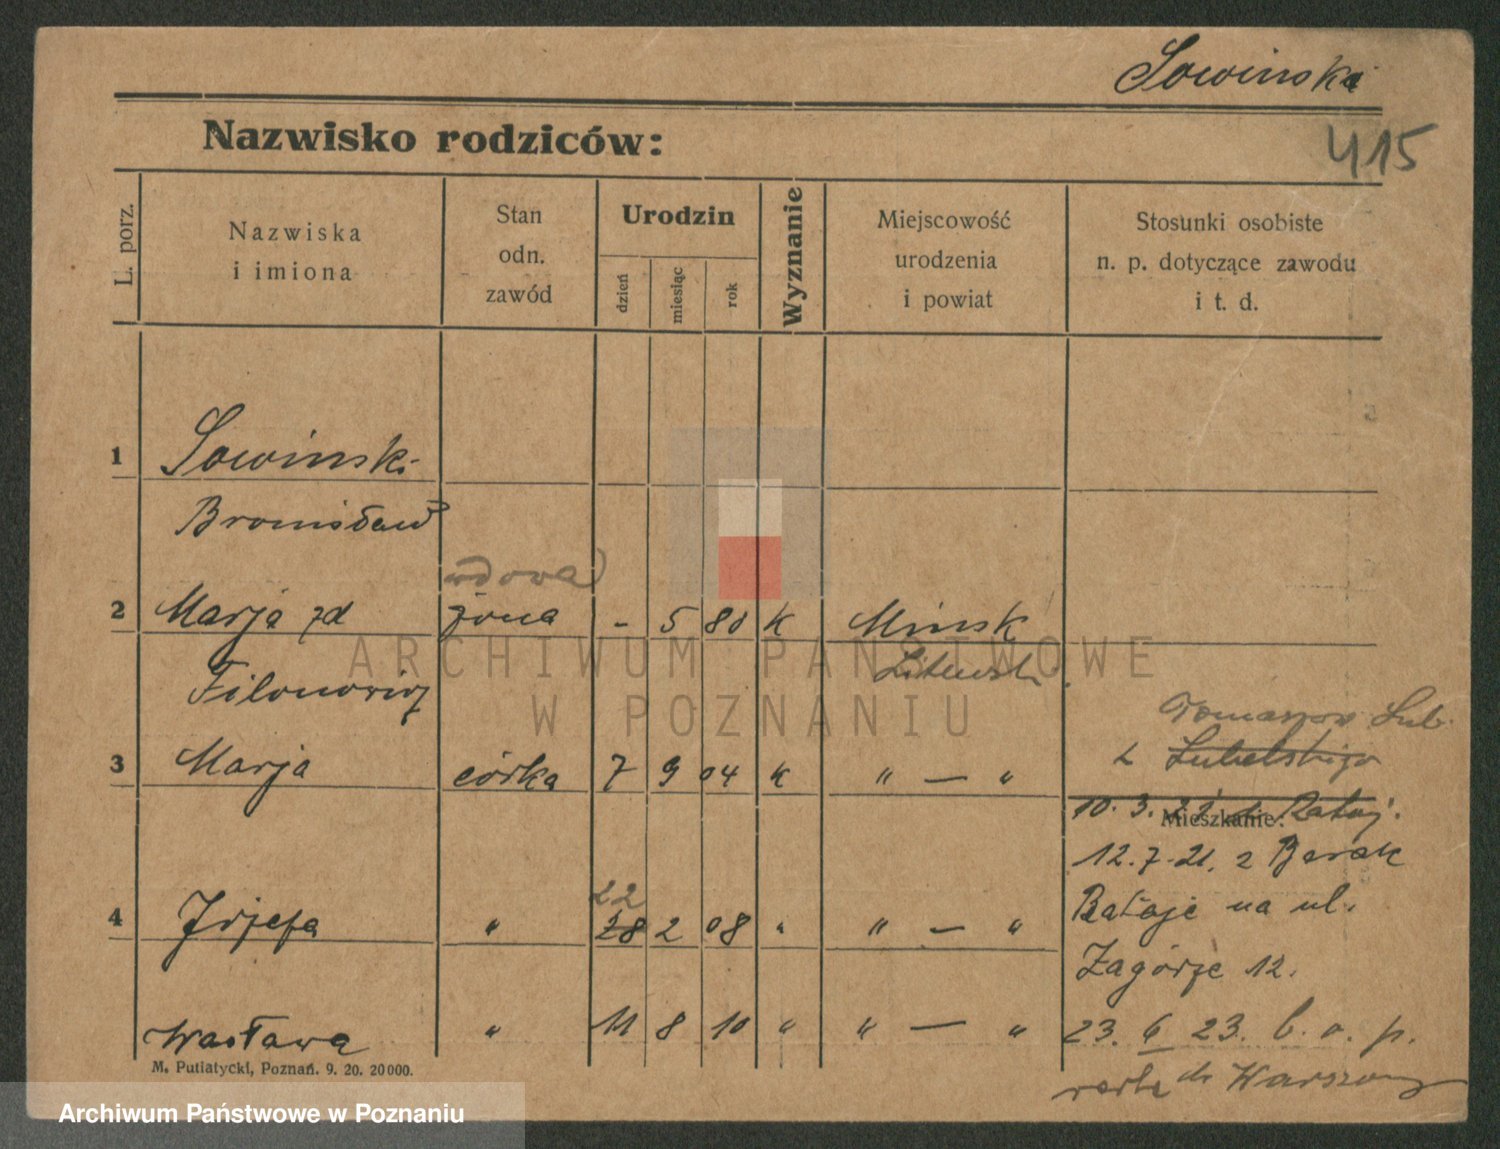 Sowinska
Nazwisko rodziców:
415
L. porz.
Nazwiska
i imiona
Stan
odn.
zawód
Urodzin
dzień
miesiąc
rok
Wyznanie
Miejscowość
urodzenia
i powiat
Stosunki osobiste
n. p. dotyczące zawodu
i t. d.
1 Sowinski
Bronisław
wdowa
2 Marja zd żona - 5 80 K Minsk
Filonowicz Litewski
Tomaszow Lub.
3 Marja córka 7 9 04 K " — " z Lubelskiego
Mieszkanie:
10. 3. 21 Rataj.
12. 7. 21. z Barak
22
4 Józefa " 28 2 08 " " — " Rataje na ul.
Zagórze 12.
Wacława " 11 8 10 " " — " 23. 6 23. b. o. p.
do Warszawy
M. Putiatycki, Poznań. 9. 20. 20 000.
ARCHIWUM PAŃSTWOWE
W POZNANIU
Archiwum Państwowe w Poznaniu